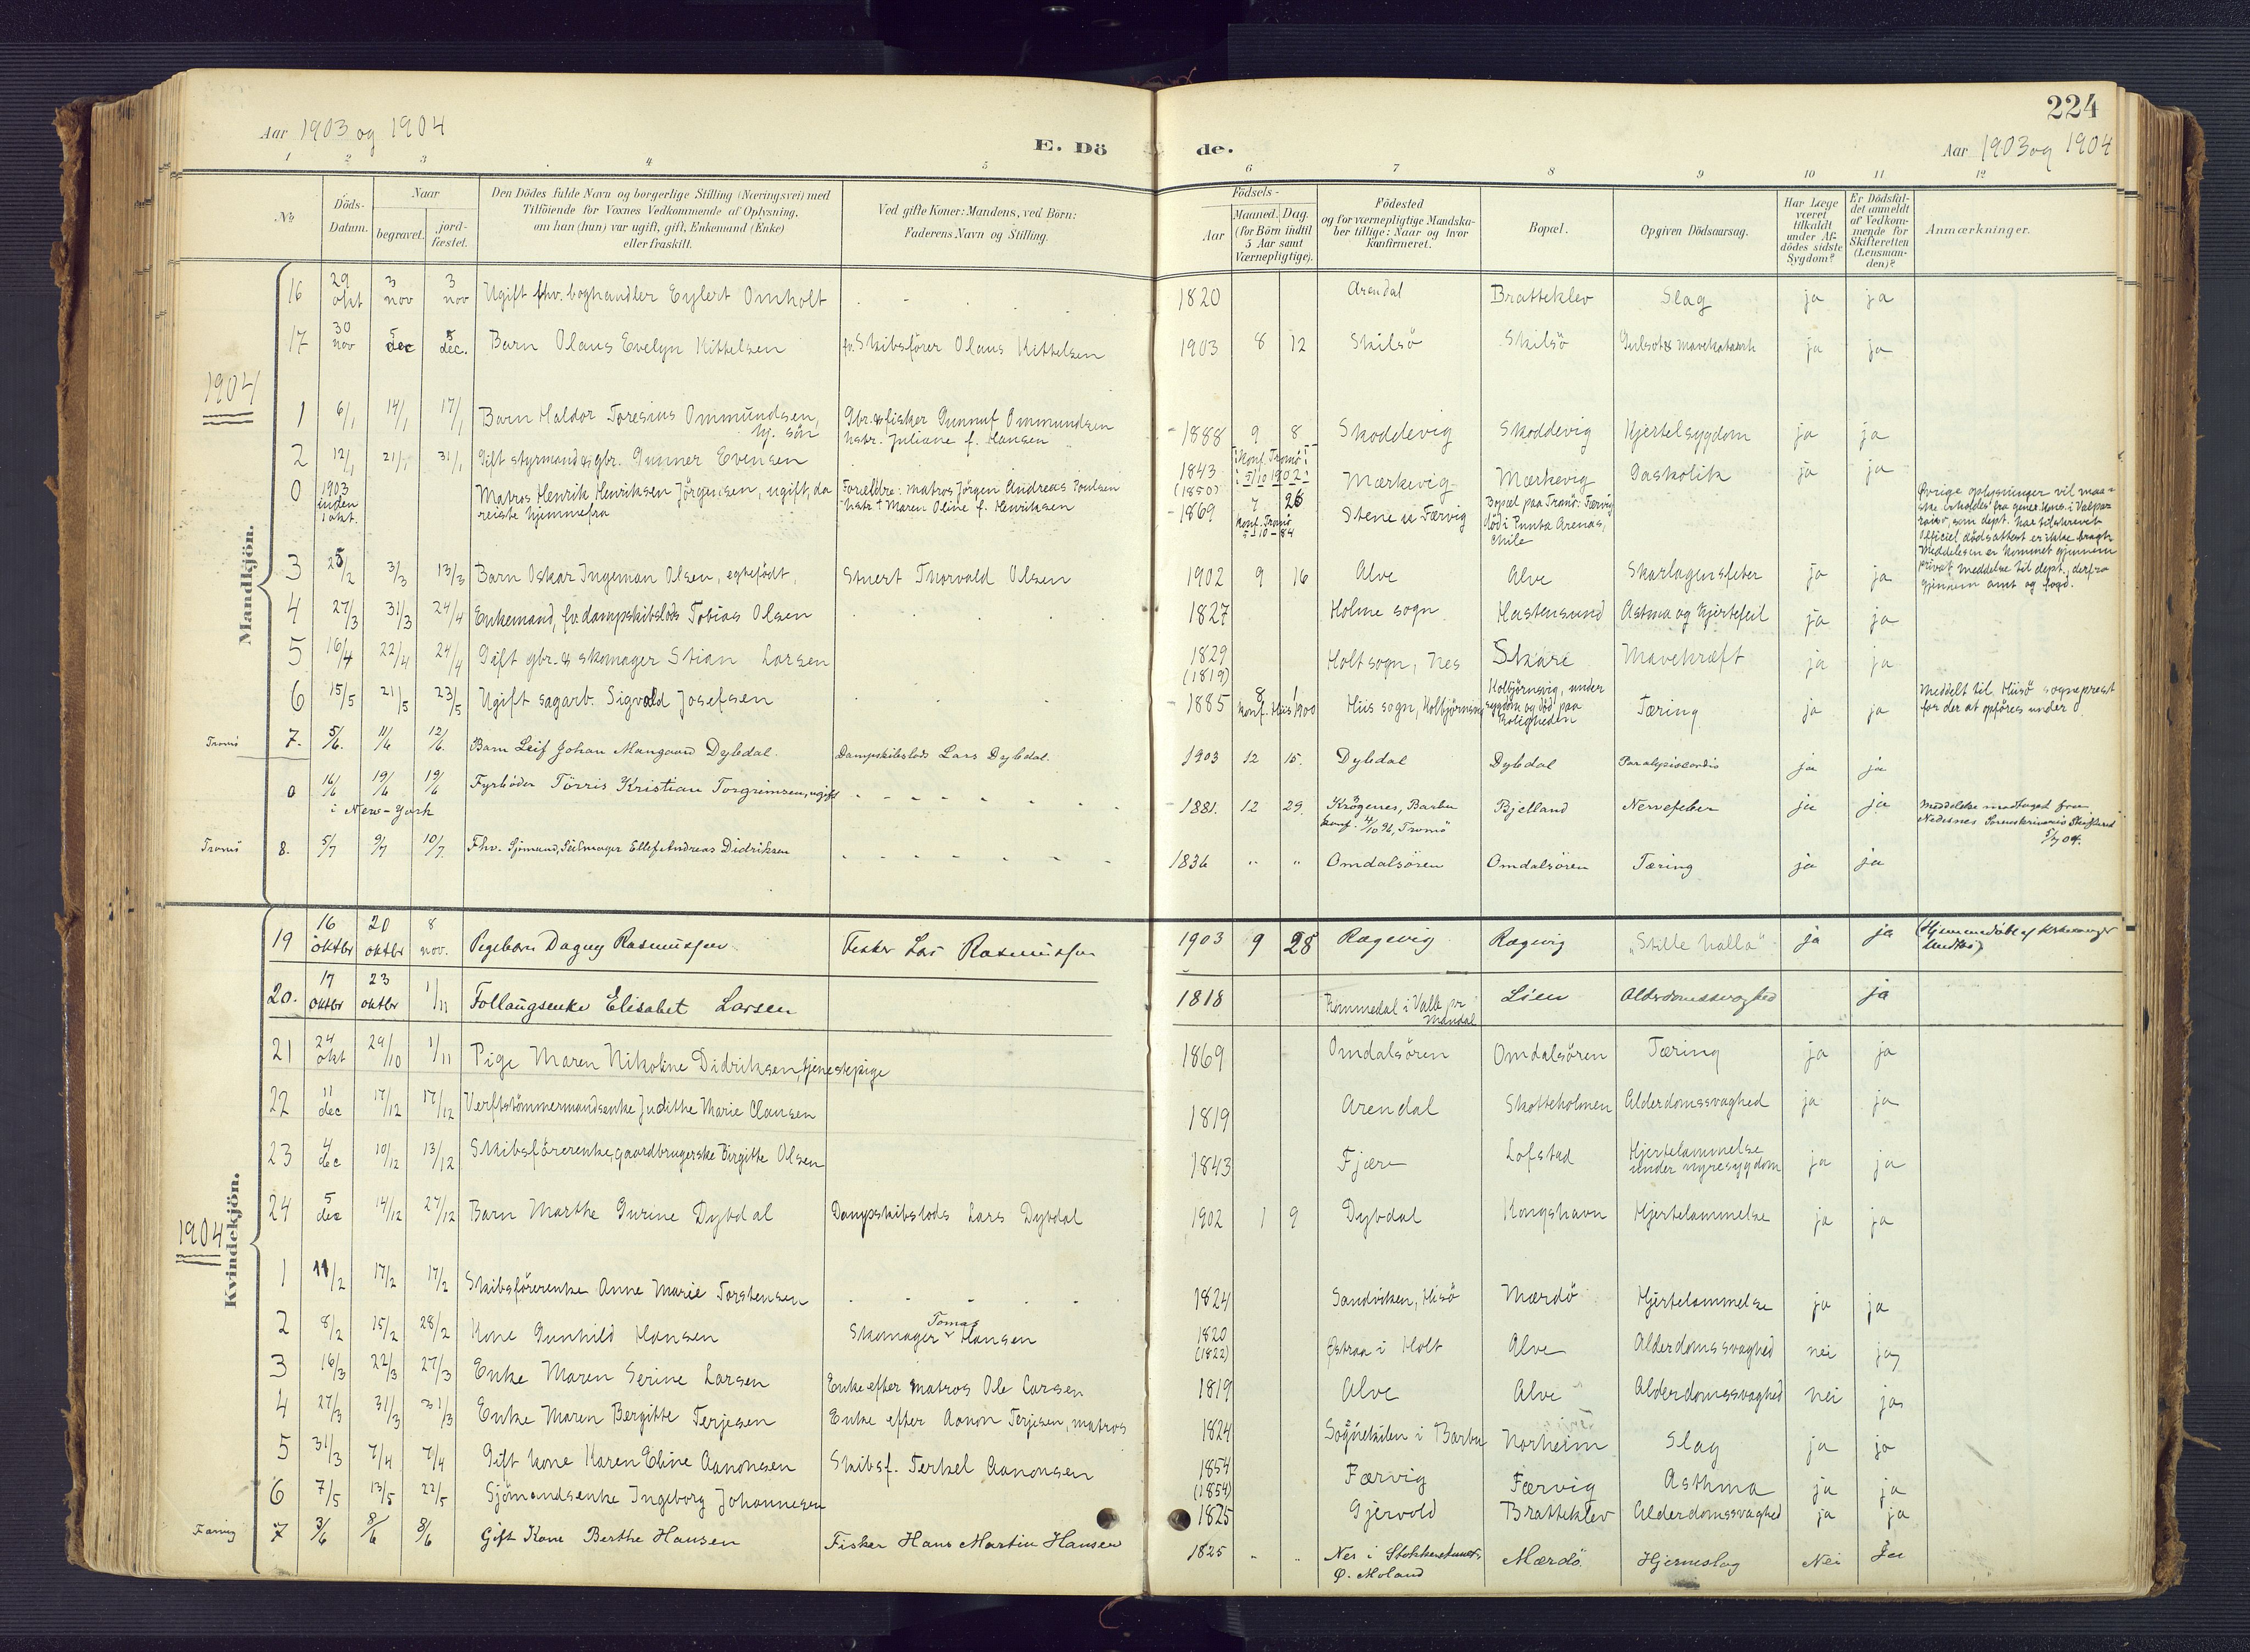 224
Aar 1903 og 1904
E. Dö de.
Aar 1903 og 1904
1 2 3 4 5 6 7 8 9 10 11 12
No
Döds-Datum.
Naar
begravet.
jordfæstet.
Den Dödes fulde Navn og borgerlige Stilling (Næringsvei) med
Tilföiende for Voxnes Vedkommende af Oplysning,
om han (hun) var ugift, gift, Enkemand (Enke)
eller fraskilt.
Ved gifte Koner: Mandens, ved Börn:
Faderens Navn og Stilling.
Födsels-
Aar
Maaned. Dag.
(for Börn indtil
5 Aar samt
Værnepligtige).
Födested
og for værnepligtige Mandska-
ber tillige: Naar og hvor
Konfirmeret.
Bopæl.
Opgiven Dödsaarsag.
Har Læge
været
tilkaldt
under Af-
dödes sidste
Sygdom?
Er Dödsfal-
det anmeldt
af Vedkom-
mende for
Skifteretten
(Lensman-
den)?
Anmærkninger.
Mandkjön.
16 29 okt 3 nov 3 nov Ugift fhv. boghandler Eylert Omholt 1820 Arendal Bratteklev Slag ja ja
17 30 nov 5 dec 5 dec. Barn Olaus Evelyn Kittelsen fv. Skibsförer Olaus Kittelsen 1903 8 12 Skilsö Skilsö Gulsot & mavekatarrh ja ja
1904
1 6/1 14/1 17/1 Barn Haldor Toresius Ommundsen, hj. sön Gbr. & fisker Gunnuf Ommundsen hstr. Juliane f. Hansen 1888 9 8 Skoddevig Skoddevig Hjertelsygdom ja ja
Konf. Tromö 5/10 1902
2 12/1 21/1 31/1 Gift styrmand & gbr. Gunner Evensen 1843 (1850) Mærkevig Mærkevig Gaskolik ja ja
0 1903 inden 1 okt. Matros Henrik Henriksen Jörgensen, ugift, da reiste hjemmefra Forældre: matros Jörgen Andreas Poulsen hstr. † Maren Oline f. Henriksen 1869 7 26 Konf. Tromö 5/10-84 Stene u Færvig Bopæl paa Tromö: Færvig död i Punta Arenas, Chile
Övrige oplysninger vil maa-
ske erholdes fra gener. kons. i Valpa-
raiso, som dept. har tilskrevet
Officiel dödsattest er ikke bragt
Meddelelsen er kommet gjennem
privat meddelse til dept., derfra
gjennem amt og fogd.
3 25/2 3/3 13/3 Barn Oskar Ingeman Olsen, egtefödt, Stuert Thorvald Olsen 1902 9 16 Alve Alve Skarlagensfeber ja ja
4 27/3 31/3 24/4 Enkemand, fv. dampskibslods Tobias Olsen 1827 Holme sogn Hastensund Astma og hjertefeil ja ja
5 16/4 22/4 24/4 Gift gbr. & skomager Stian Larsen 1829 (1819) Holt sogn, Nes Skare Mavekræft ja ja
6 15/5 21/5 23/5 Ugift sagarb. Sigvald Josefsen 1885 8 1 Konf. Hiis 1900 Hiis sogn, Kolbjörnsvig Kolbjörnsvig, under sygdom og död paa Roligheden Tæring ja ja Meddelt til Hisö sogneprest for der at opföres under
Tromö 7. 5/6. 11/6 12/6. Barn Leif Johan Mangaard Dybdal. Dampskibslods Lars Dybdal. 1903 12 15. Dybdal Dybdal Paralysis cordis ja ja
0 16/6 19/6 19/6 i New-York Fyrböder Törris Kristian Torgrimsen, ugift 1881. 12 29. Krögenes, Barbu konf. 4/10 96, Tromö Bjelland Nervefeber ja ja Meddelelse modtaget fra Nedenes Sorenskriveris Skifteret 5/7 04.
Tromö 8. 5/7 9/7 10/7. Fhv. Sjömand, Seilmager Ellef Andreas Didriksen 1836 " " Omdalsören Omdalsören Tæring ja ja
Kvindekjön.
19 16 oktbr 20 oktbr 8 nov. Pigebarn Dagny Rasmussen Fisker Lars Rasmussen 1903 9 28 Ragevig Ragevig "Stille halla" ja ja
20. 17 oktbr 23 oktbr 1/11 Follaugsenke Elisabet Larsen 1818 Lien Alderdomssvaghed ja
21 24 okt 29/10 1/11 Pige Maren Nikoline Didriksen, tjenestepige 1869 Omdalsören Omdalsören Tæring ja ja
22 11 dec 17/12 17/12 Verftstömmermandsenke Judithe Marie Clausen 1819 Arendal Skotteholmen Alderdomssvaghed ja ja
23 4 dec 10/12 13/12 Skibsförerenke, gaardbrugerske Birgitte Olsen 1843 Fjære Lofstad Hjertelammelse under nyresygdom ja ja
24 5 dec 14/12 27/12 Barn Marthe Gurine Dybdal Dampskibslods Lars Dybdal 1902 1 9 Dybdal Kongshavn Hjertelammelse ja ja
1904
1 11/2 17/2 17/2 Skibsförerenke Anne Marie Torstensen 1824 Sandviken, Hisö Mærdö Hjertelammelse ja ja
2 8/2 15/2 28/2 Kone Gunhild Hansen Skomager Tomas Hansen 1820 (1822) Östraa i Holt Alve Alderdomssvaghed nei ja
3 16/3 22/3 27/3 Enke Maren Serine Larsen Enke efter matros Ole Larsen 1819 Alve Alve Alderdomssvaghed nei ja
4 27/3 31/3 31/3 Enke Maren Bergitte Terjesen Enke efter Aanon Terjesen, matros 1824 Songekilen i Barbu Norheim Slag ja ja
5 31/3 7/4 7/4 Gift kone Karen Eline Aanonsen Skibsf. Terkel Aanonsen 1854 (1854) Færvig Færvig Asthma ja ja
6 7/5 13/5 22/5 Sjömandsenke Ingeborg Johannesen 1825 Gjervold Bratteklev Alderdomssvaghed ja ja
7 3/6 8/6 8/6 Gift Kone Berthe Hansen Fisker Hans Martin Hansen 1825 Nes i Ö. Moland Mærdö. Hjerneslag Nei Ja